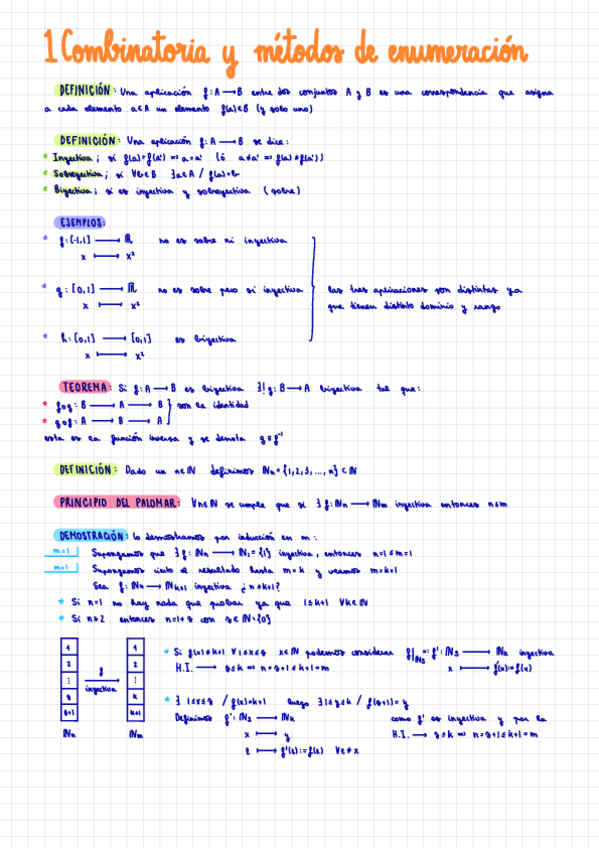 1 Combinatoria y métodos de enumeración
DEFINICIÓN: Una aplicación f: A → B entre dos conjuntos A y B es una correspondencia que asigna
a cada elemento a∈A un elemento f(a)∈B (y solo uno)
DEFINICIÓN: Una aplicación f: A → B se dice:
* Inyectiva; si f(a)=f(a') => a=a' (ó a≠a' => f(a)≠f(a'))
* Sobreyectiva; si ∀b∈B ∃a∈A / f(a)=b
* Biyectiva; si es inyectiva y sobreyectiva (sobre)
EJEMPLOS:
* f: [-1,1] → ℝ no es sobre ni inyectiva
x ↦ x²
* g: [0,1] → ℝ no es sobre pero si inyectiva
x ↦ x²
las tres aplicaciones son distintas ya
que tienen distinto dominio y rango
* h: [0,1] → [0,1] es biyectiva
x ↦ x²
TEOREMA: Si f: A → B es biyectiva ∃! g: B → A biyectiva tal que:
* f∘g: B → A → B } son la identidad
* g∘f: A → B → A
esta es la función inversa y se denota g=f⁻¹
DEFINICIÓN: Dado un n∈ℕ definimos ℕn = {1,2,3,...,n} ⊂ ℕ
PRINCIPIO DEL PALOMAR: ∀n∈ℕ se cumple que si ∃ f: ℕn → ℕm inyectiva entonces n≤m
DEMOSTRACIÓN: lo demostramos por inducción en m:
m=1 Supongamos que ∃ f: ℕn → ℕ1 = {1} inyectiva, entonces n=1≤m=1
m+1 Supongamos cierto el resultado hasta m=k y veamos m=k+1
Sea f: ℕn → ℕk+1 inyectiva ¿n≤k+1?
* Si n=1 no hay nada que probar ya que 1≤k+1 ∀k∈ℕ
* Si n≥2 entonces n=1+s con s∈ℕ\{0}
1 1
2 2
⋮ f ⋮
inyectiva
s k
s+1 k+1
ℕn ℕm
* Si f(x)≠k+1 ∀1≤x≤s x∈ℕ podemos considerar f|ℕs =: f': ℕs → ℕk inyectiva
x ↦ f'(x):=f(x)
H.I. → s≤k => n=s+1≤k+1=m
* ∃ 1≤x≤s / f(x)=k+1 luego ∃ 1≤y≤k / f(s+1)=y
Definimos f': ℕs → ℕk como f' es inyectiva y por la
x ↦ y H.I. → s≤k => n=s+1≤k+1=m
z ↦ f'(z):=f(z) ∀z≠x